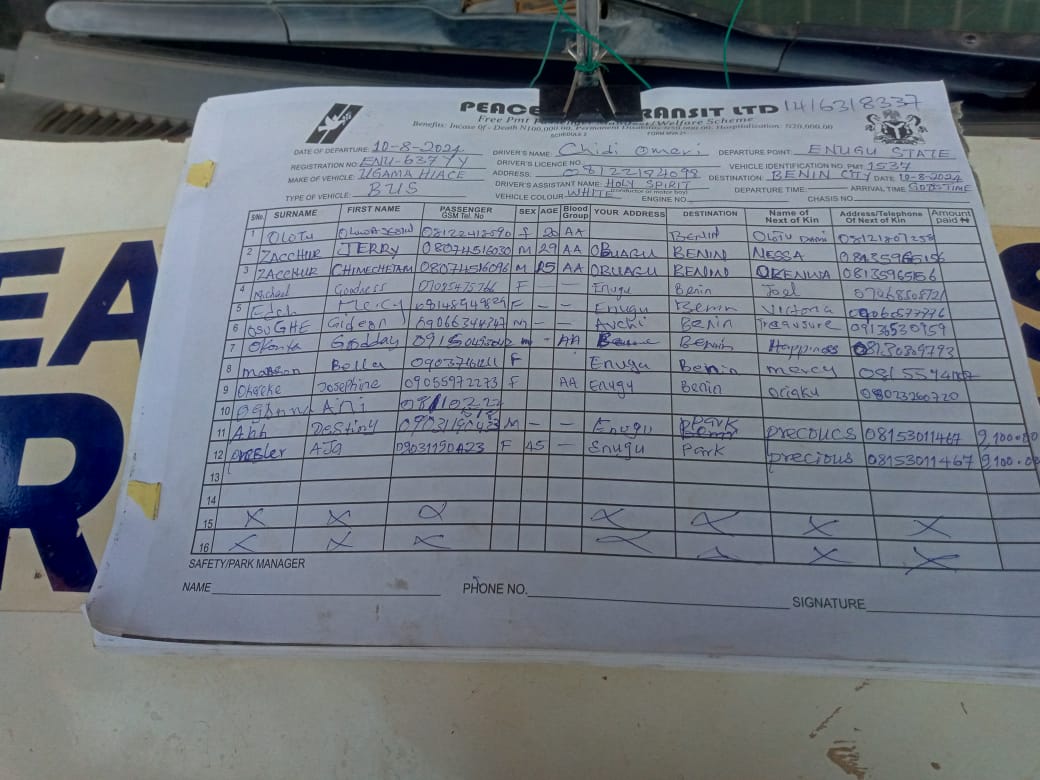 PEACE TRANSIT LTD 1416318337
Free Pmt Welfare Scheme
Benefits: Incase Of - Death N100,000.00, Permanent Disability N50,000.00, Hospitalisation: N20,000.00
SCHEDULE 2
DATE OF DEPARTURE: 10-8-2024 DRIVER'S NAME: Chidi Omeri DEPARTURE POINT: ENUGU STATE
REGISTRATION NO. ENU-637YY DRIVER'S LICENCE NO. VEHICLE IDENTIFICATION NO. PMT 1534
MAKE OF VEHICLE UGAMA HIACE ADDRESS: 08122184098 DESTINATION BENIN CITY DATE 10-8-2024
TYPE OF VEHICLE: BUS DRIVER'S ASSISTANT NAME: HOLY SPIRIT (conductor or motor boy) DEPARTURE TIME: ARRIVAL TIME GODS TIME
VEHICLE COLOUR: WHITE ENGINE NO. CHASIS NO.
S/No. SURNAME FIRST NAME PASSENGER GSM Tel. No SEX AGE Blood Group YOUR ADDRESS DESTINATION Name of Next of Kin Address/Telephone Of Next of Kin Amount paid ₦
1 OLOTU 08122418590 f 20 AA BENIN OLOTU 08121807258
2 ZACCHUR JERRY 08074516030 M 29 AA OBUAGU BENIN NESSA 08135965156
3 ZACCHUR CHIMECHETAM 08074516096 M 25 AA OBUAGU BENIN OKENWA 08135965156
4 Michael Goodness 07085475766 F — — Enugu Benin Joel
5 Edeh Mercy 08148949884 F — — Enugu Benin Victoria
6 OSUGHE Gideon 09066344747 M — — Awka BENIN Treausure 09136530959
7 Okonta Godday m - AA Benin Happiness 08130309793
8 Bella F Enugu Benin mercy
9 Okeke Josephine 09055972273 F AA Enugu Benin 08023260720
10 Ani
11 Ahh Destiny M — — Enugu Park precoucs 08153011467 9,100.00
12 AJA 09031190423 F 45 — Enugu Park precious 08153011467 9,100.00
13
14
15 X X X X X X X
16 X X X X X X X
SAFETY/PARK MANAGER
NAME PHONE NO. SIGNATURE
EA
R
S